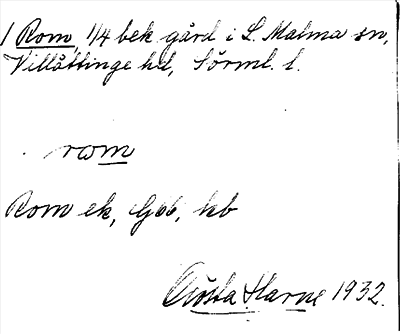 1 Rom, 1/4 bek gård i L. Malma sn,
Villåttinge hd, Sörml. l.
rom
Rom ek, Gob, kb
Gösta Harne 1932.